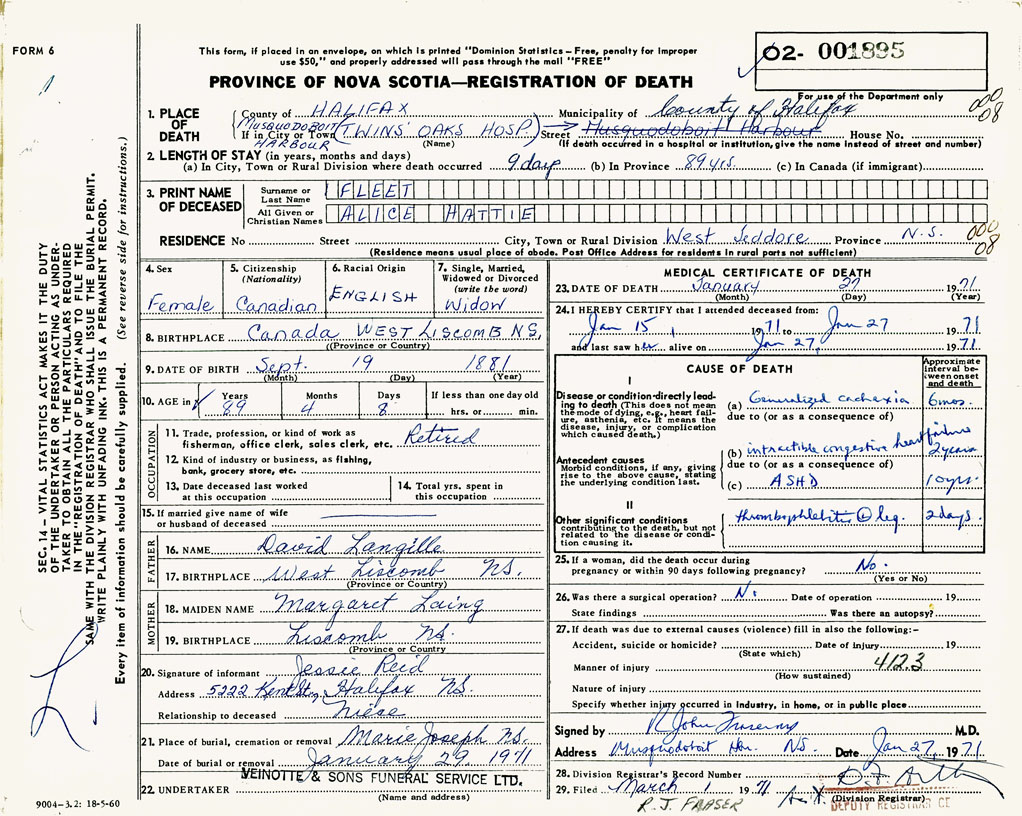 FORM 6
This form, if placed in an envelope, on which is printed "Dominion Statistics – Free, penalty for improper
use $50," and properly addressed will pass through the mail "FREE"
02- 001895
For use of the Department only
PROVINCE OF NOVA SCOTIA—REGISTRATION OF DEATH
000
08
1. PLACE OF DEATH
County of HALIFAX Municipality of County of Halifax
If in City or Town MUSQUODOBOIT HARBOUR (TWINS' OAKS HOSP) Street Musquodoboit Harbour House No.
(Name) (If death occurred in a hospital or institution, give the name instead of street and number)
2. LENGTH OF STAY (in years, months and days)
(a) In City, Town or Rural Division where death occurred 9 days (b) In Province 89 yrs. (c) In Canada (if immigrant)
3. PRINT NAME OF DECEASED
Surname or Last Name FLEET
All Given or Christian Names ALICE HATTIE
000
08
RESIDENCE No Street City, Town or Rural Division West Jeddore Province N.S.
(Residence means usual place of abode. Post Office Address for residents in rural parts not sufficient)
4. Sex Female
5. Citizenship (Nationality) Canadian
6. Racial Origin ENGLISH
7. Single, Married, Widowed or Divorced (write the word) Widow
8. BIRTHPLACE Canada WEST LISCOMB N.S.
(Province or Country)
9. DATE OF BIRTH Sept. 19 1881
(Month) (Day) (Year)
10. AGE in Years 89 Months 4 Days 8 If less than one day old
hrs. or min.
OCCUPATION
11. Trade, profession, or kind of work as
fisherman, office clerk, sales clerk, etc. Retired
12. Kind of industry or business, as fishing,
bank, grocery store, etc.
13. Date deceased last worked
at this occupation
14. Total yrs. spent in
this occupation
15. If married give name of wife
or husband of deceased
FATHER
16. NAME David Langille
17. BIRTHPLACE West Liscomb NS.
(Province or Country)
MOTHER
18. MAIDEN NAME Margaret Laing
19. BIRTHPLACE Liscomb NS.
(Province or Country)
20. Signature of informant Jessie Reid
Address 5222 Kent St, Halifax NS.
Relationship to deceased Niese
21. Place of burial, cremation or removal Marie Joseph NS.
Date of burial or removal January 29 1971
VEINOTTE & SONS FUNERAL SERVICE LTD.
22. UNDERTAKER
(Name and address)
MEDICAL CERTIFICATE OF DEATH
23. DATE OF DEATH January 27 1971
(Month) (Day) (Year)
24. I HEREBY CERTIFY that I attended deceased from:
Jan 15, 1971 to Jan 27 1971
and last saw her alive on Jan 27, 1971
CAUSE OF DEATH
Approximate interval between onset and death
I
Disease or condition directly leading to death (This does not mean the mode of dying, e.g., heart failure, asthenia, etc. It means the disease, injury, or complication which caused death.)
(a) Generalized cachexia 6 mos.
due to (or as a consequence of)
Antecedent causes
Morbid conditions, if any, giving rise to the above cause, stating the underlying condition last.
(b) intractible congestive heart failure 2 years
due to (or as a consequence of)
(c) ASHD 10 yrs.
II
Other significant conditions
contributing to the death, but not related to the disease or condition causing it.
thrombophlebitis L leg. 2 days.
25. If a woman, did the death occur during
pregnancy or within 90 days following pregnancy? No.
(Yes or No)
26. Was there a surgical operation? No Date of operation 19
State findings Was there an autopsy?
27. If death was due to external causes (violence) fill in also the following:–
Accident, suicide or homicide? Date of injury 19
(State which)
4123
Manner of injury
(How sustained)
Nature of injury
Specify whether injury occurred in industry, in home, or in public place
Signed by R John M.D.
Address Musquodoboit Har. NS. Date Jan 27, 1971
28. Division Registrar's Record Number
29. Filed March 1 1971
(Division Registrar)
R.J. FRASER
DEPUTY REGISTRAR
SEC. 14 – VITAL STATISTICS ACT MAKES IT THE DUTY
OF THE UNDERTAKER OR PERSON ACTING AS UNDER-
TAKER TO OBTAIN ALL THE PARTICULARS REQUIRED
IN THE "REGISTRATION OF DEATH" AND TO FILE THE
SAME WITH THE DIVISION REGISTRAR WHO SHALL ISSUE THE BURIAL PERMIT.
WRITE PLAINLY WITH UNFADING INK. THIS IS A PERMANENT RECORD.
Every item of information should be carefully supplied. (See reverse side for instructions.)
9004–3.2: 18-5-60